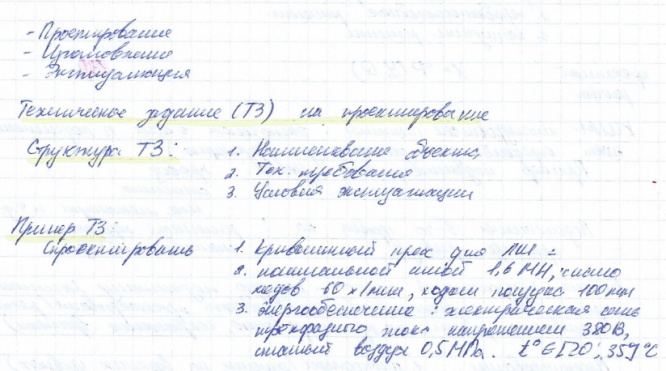 - Проектирование
- Изготовление
- Эксплуатация
Техническое задание (ТЗ) на проектирование
Структура ТЗ: 1. Наименование объекта
2. Тех. требования
3. Условия эксплуатации
Пример ТЗ:
Спроектировать 1. Кривошипный пресс для ЛШ =
2. номинальной силой 1,6 МН, число
ходов 60 х/мин, ходом ползуна 100 мм
3. Энергообеспечение: электрическая сеть
трехфазного тока напряжением 380В,
сжатый воздух 0,5 МПа. t° ∈ [20; 35]°C